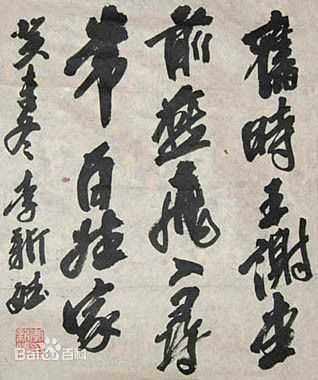 舊時王謝堂
前燕飛入尋
常百姓家
癸冬李新
Baidu百科